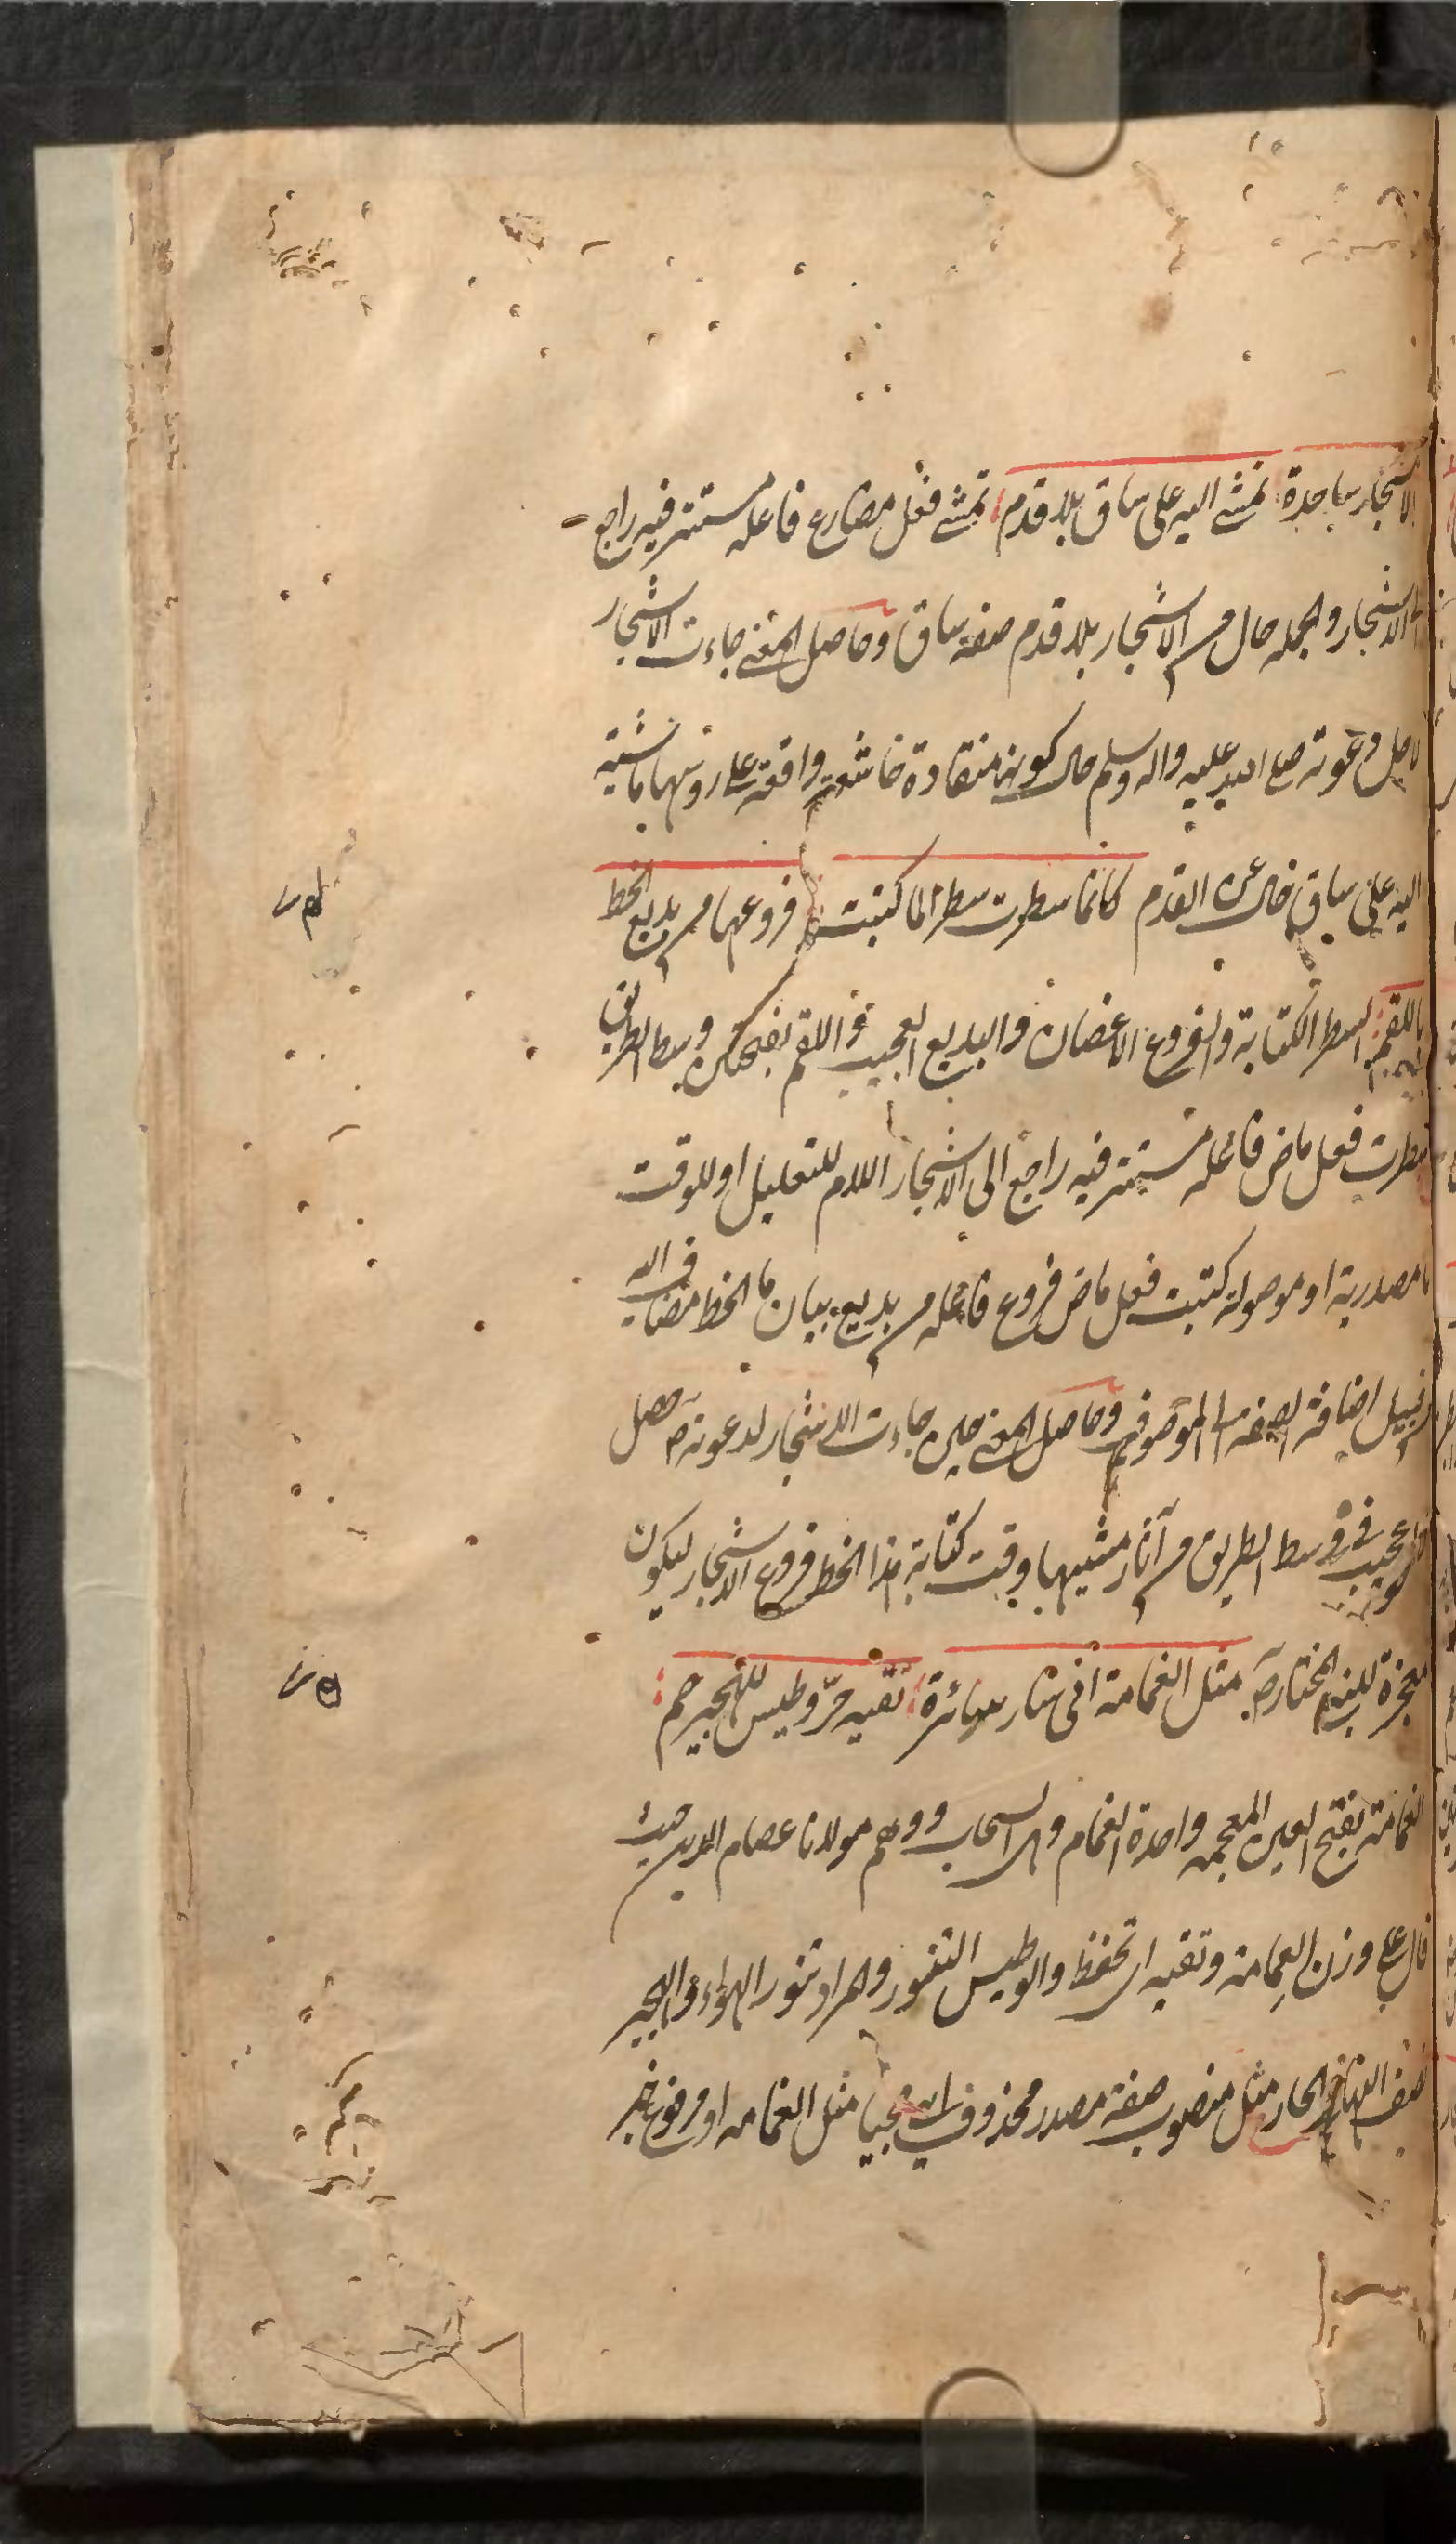 الاشجار ساجدة تمشي اليه على ساق بلا قدم تمشي فعل مضارع فاعله مستتر فيه راجع
الى الاشجار والجمله حال من الاشجار بلا قدم صفة ساق وحاصل المعنى جاءت الاشجار
لاجل دعوته صلى الله عليه واله وسلم حال كونها منقادة خاشعة واقعة على رؤسها ماشية
اليه على ساق خال عن القدم كانما سطرت سطرا لما كتبت فروعها من بديع الخط
باللقم السطر الكتابة والفروع الاغصان والبديع العجيب و اللقم بفتحتين وسط الطريق
سطرت فعل ماض فاعله مستتر فيه راجع الى الاشجار اللام للتعليل او للوقت
ما مصدرية او موصولة كتبت فعل ماض فروع فاعله من بديع بيان ما الخط مضاف اليه
من قبيل اضافة الصفة الى الموصوف وحاصل المعنى حين جاءت الاشجار لدعوته حصل
عجيب في وسط الطريق من آثار مشيها وقت كتابة هذا الخط فروع الاشجار ليكون
معجزة للنبي المختار مثل الغمامة انى سار سائرة تقيه حر وطيس للهجير حم
الغمامة بفتح الغين المعجمه واحدة الغمام وهى السحاب ووهم مولانا عصام الدين حيث
قال على وزن العمامة وتقيه اى تحفظ والوطيس التنور والمراد تنور الهواء والهجير
نصف النهار الحار مثل منصوب صفة مصدر محذوف اى مجيا مثل الغمامه او مرفوع خبر